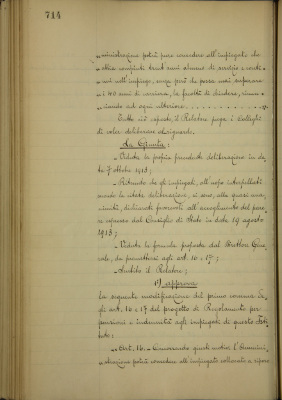 714
ministrazione potrà pure concedere all'impiegato che
abbia compiuti trent'anni almeno di servizio e venti
nell'impiego, senza però che possa mai superare
i 40 anni di servizio, la facoltà di chiedere, rinun-
ciando ad ogni ulteriore
Tutto ciò esposto, il Relatore prega i Colleghi
di voler deliberare al riguardo.
La Giunta:
- Veduta la propria precedente deliberazione in da-
ta 7 ottobre 1913;
- Ritenuto che gli impiegati, all'uopo interpellati
la citata deliberazione, si sono, alla quasi una-
nimità, dichiarati favorevoli all'accoglimento del pare-
re espresso dal Consiglio di Stato in data 29 agosto
1913;
- Veduta la formula proposta dal Direttore Gene-
rale, da agli art. 16 e 17;
- Sentito il Relatore;
approva
la seguente modificazione del primo comma de-
gli art. 16 e 17 del progetto di Regolamento per
pensioni e indennità agli impiegati di questo Isti-
tuto:
- "Art. 16. - l'Ammini-
strazione potrà concedere all'impiegato collocato a riposo